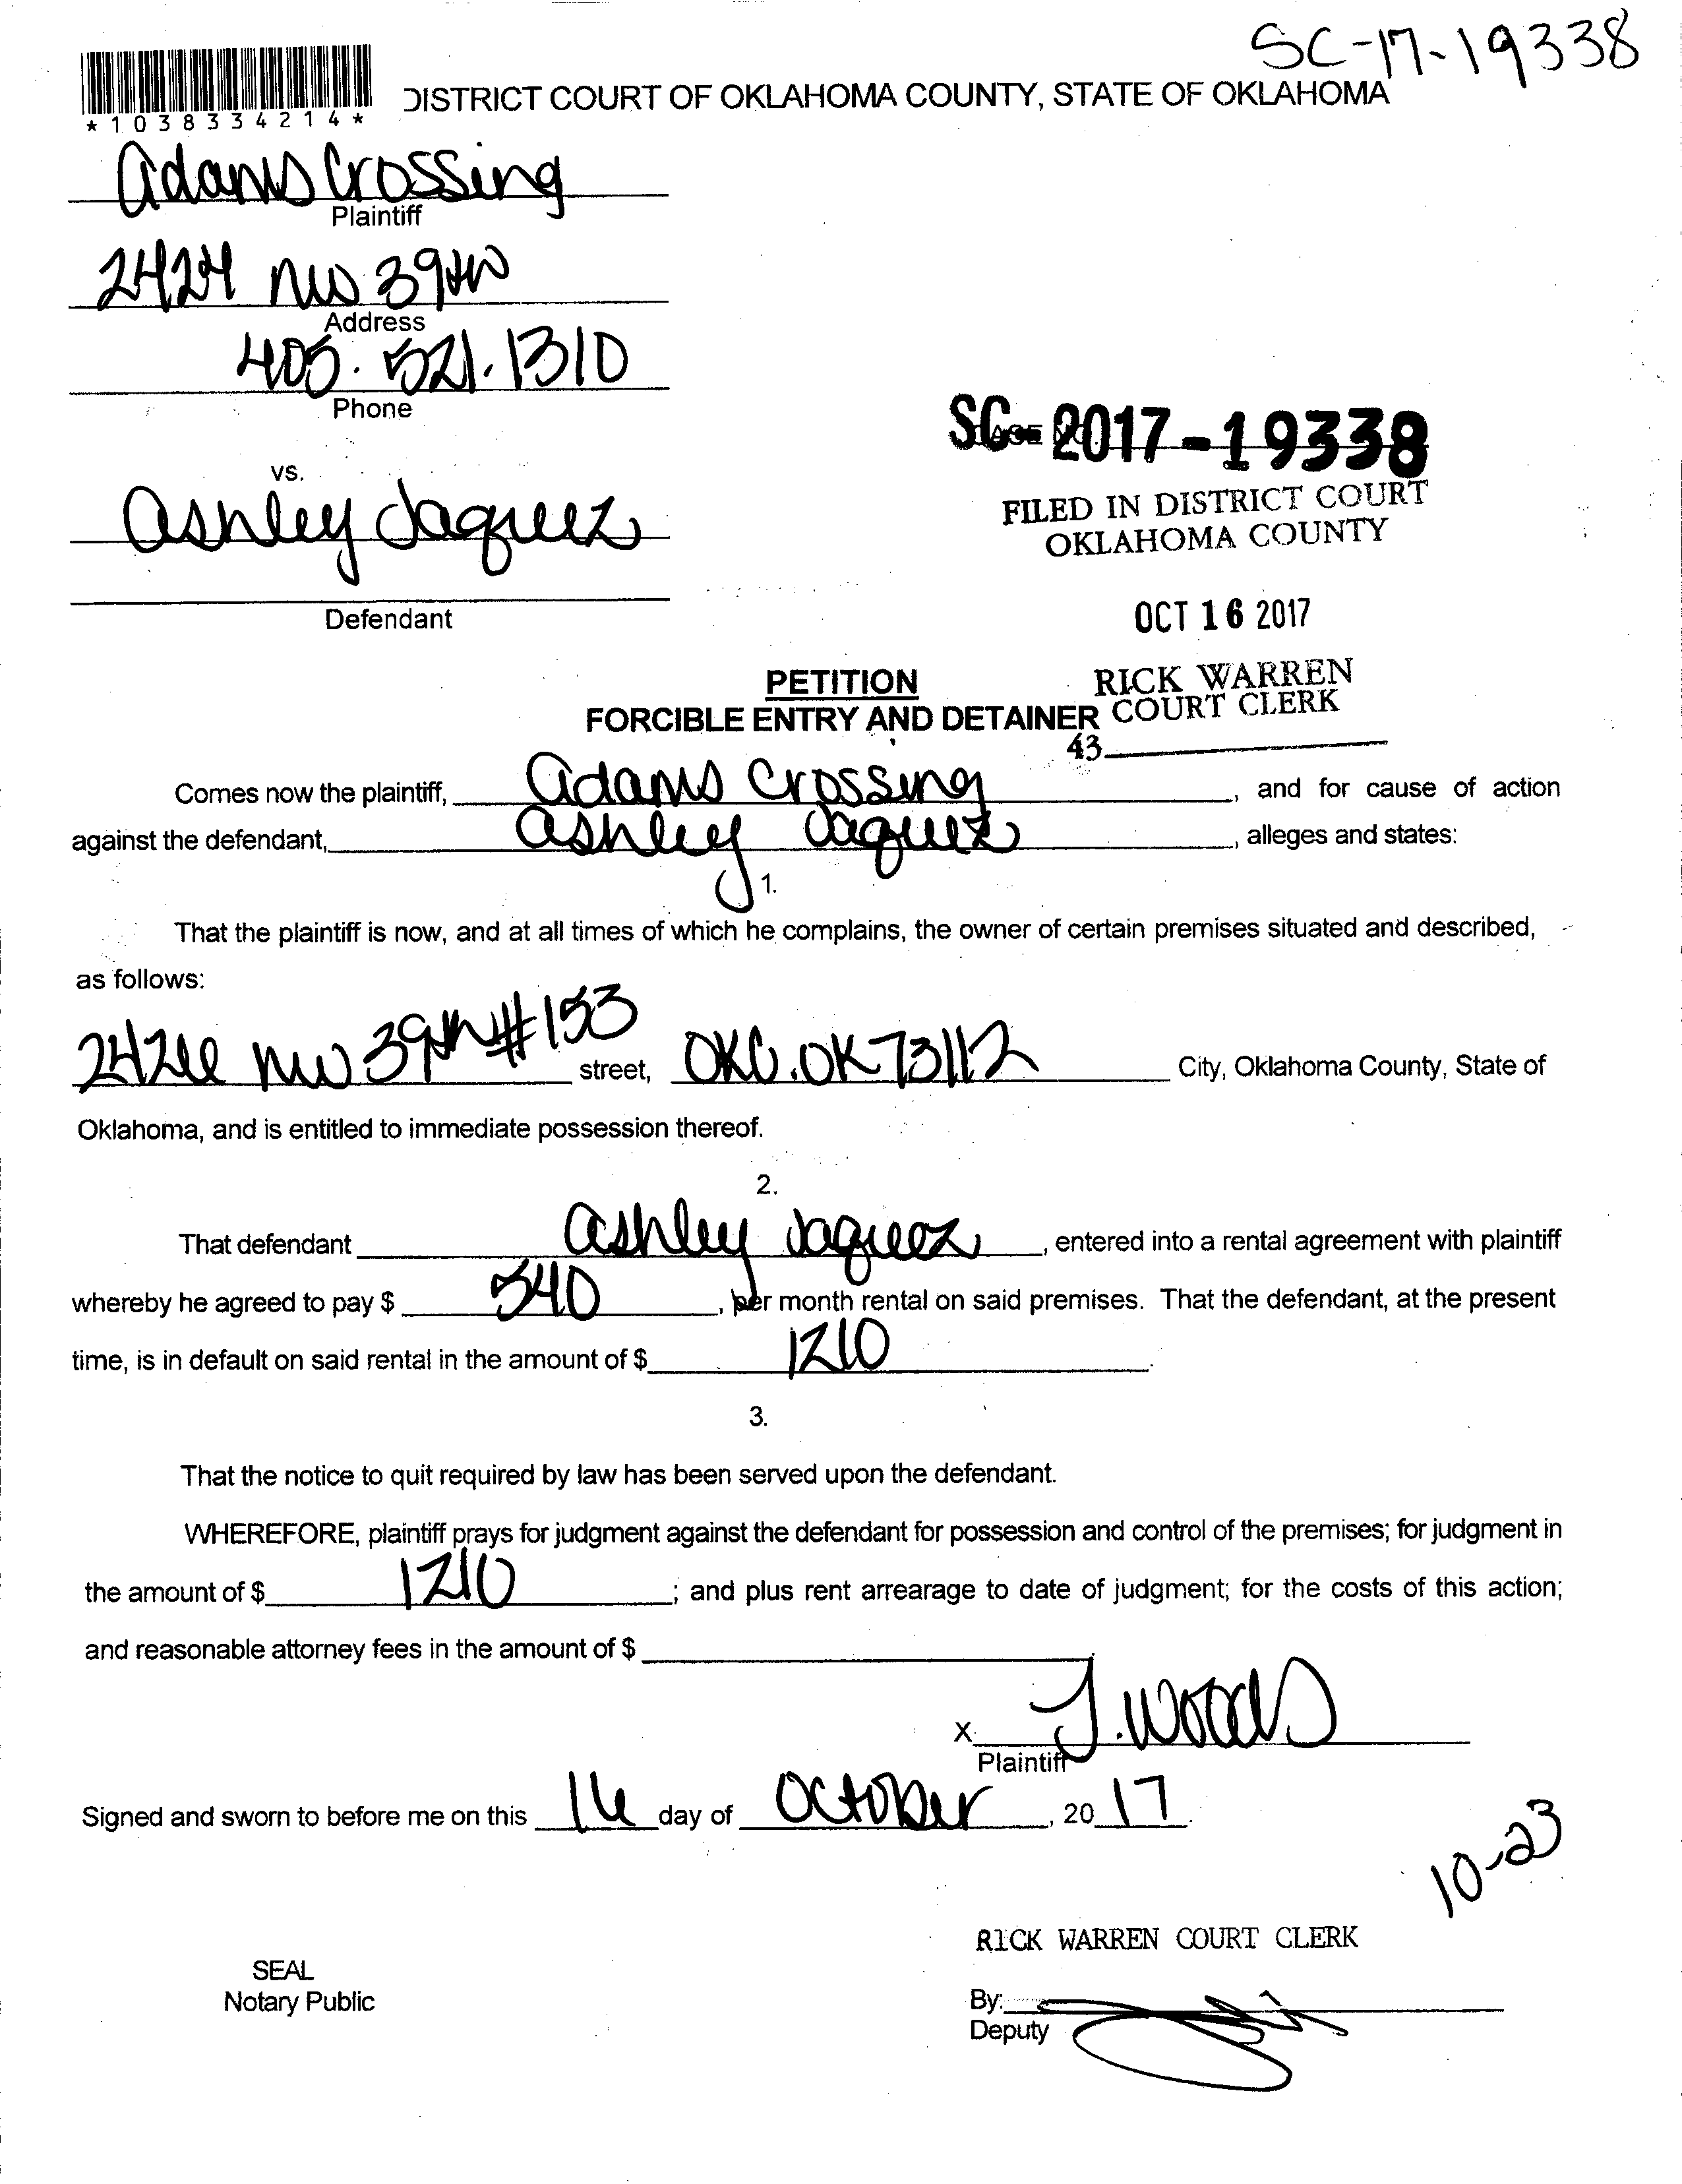 SC-17-19338
*1038334214*
DISTRICT COURT OF OKLAHOMA COUNTY, STATE OF OKLAHOMA
Adams Crossing
Plaintiff
2424 NW 39th
Address
405.521.1310
Phone
SC-2017-19338
vs.
FILED IN DISTRICT COURT
OKLAHOMA COUNTY
Ashley Jaquez
Defendant
OCT 16 2017
PETITION
RICK WARREN
FORCIBLE ENTRY AND DETAINER
COURT CLERK
43
Comes now the plaintiff, Adams Crossing, and for cause of action
against the defendant, Ashley Jaquez, alleges and states:
1.
That the plaintiff is now, and at all times of which he complains, the owner of certain premises situated and described,
as follows:
2426 NW 39th #153 street, OKC. OK 73112 City, Oklahoma County, State of
Oklahoma, and is entitled to immediate possession thereof.
2.
That defendant Ashley Jaquez, entered into a rental agreement with plaintiff
whereby he agreed to pay $ 540, per month rental on said premises. That the defendant, at the present
time, is in default on said rental in the amount of $ 1210.
3.
That the notice to quit required by law has been served upon the defendant.
WHEREFORE, plaintiff prays for judgment against the defendant for possession and control of the premises; for judgment in
the amount of $ 1210; and plus rent arrearage to date of judgment; for the costs of this action;
and reasonable attorney fees in the amount of $
X J. Woods
Plaintiff
Signed and sworn to before me on this 16 day of October, 20 17.
10-23
RICK WARREN COURT CLERK
SEAL
Notary Public
By:
Deputy